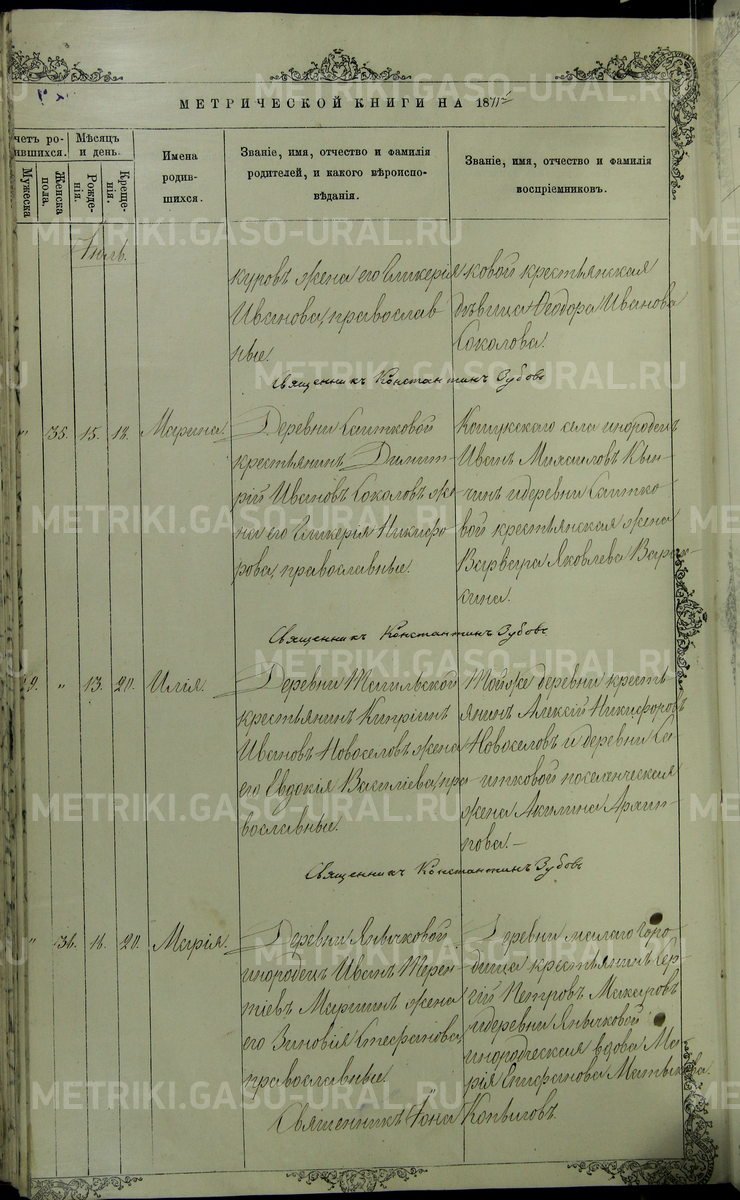 МЕТРИЧЕСКОЙ КНИГИ НА 1871
четъ ро-
ившихся.
Мужеска
Женска
пола.
Мѣсяцъ
и день.
Рожде-
нія.
Креще-
нія.
Имена
родив-
шихся.
Званіе, имя, отчество и фамилія
родителей, и какого вѣроиспо-
вѣданія.
Званіе, имя, отчество и фамилія
воспріемниковъ.
Іюль.
куровъ жена его Гликерія
Иванова, православ
ные.
ковой крестьянская
дѣвица Ѳеодора Иванова
Соколова.
Священникъ Константинъ Зубовъ
" 35. 15. 18. Марина.
Деревни Саитковой
крестьянинъ Димит-
рій Ивановъ Соколовъ же
на его Гликерія Никифо
рова, православные.
Кошукскаго села инородецъ
Иванъ Михаиловъ
чинъ и деревни Саитко
вой крестьянская жена
Варвара Яковлева
сина.
Священникъ Константинъ Зубовъ
29. " 13. 20. Илія.
Деревни Тагильской
крестьянинъ Кипріянъ
Ивановъ Новоселовъ жена
его Евдокія Василіева, пра
вославные.
Тойже деревни кресть
янинъ Алексій Никифоровъ
Новоселовъ и деревни Са
итковой поселенческая
жена Акилина Архип-
пова.
Священникъ Константинъ Зубовъ
" 36. 18. 20. Марія.
Деревни Янычковой
инородецъ Иванъ Терен
тіевъ жена
его Зиновія Стефанова,
православные.
Деревни малаго Горо
дища крестьянинъ Сер-
гій Петровъ Макаровъ
и деревни Янычковой
инородческая вдова Ма
рія Епифанова
Священникъ Іона Копыловъ.
METRIKI.GASO-URAL.RU